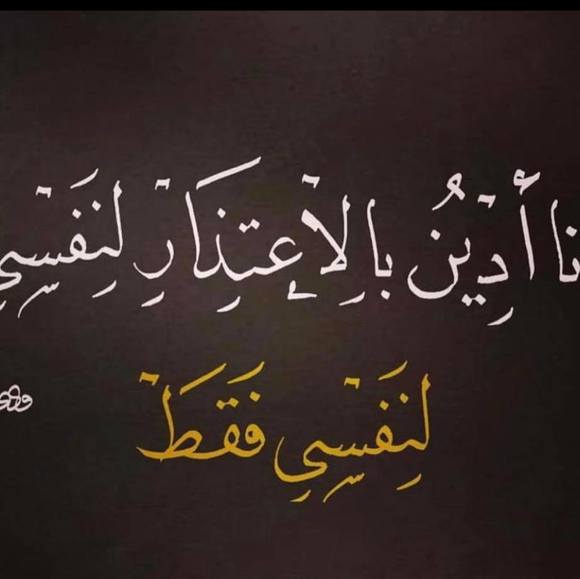 نا أَدِينُ بالِإعتِذَارِ لنَِفَسِي
لنَِفَسِي فَقَطْ